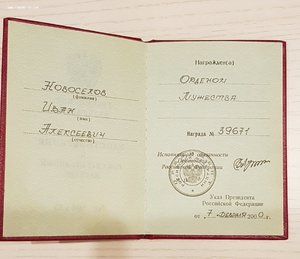 Новоселов
(фамилия)
Иван
(имя)
Алексеевич
(отчество)
Награжден(а)
Орденом
Мужества
Награда № 39671
Исполняющий обязанности
Президента
Российской Федерации
Указ Президента
Российской Федерации
от 7 февраля 2000 г.